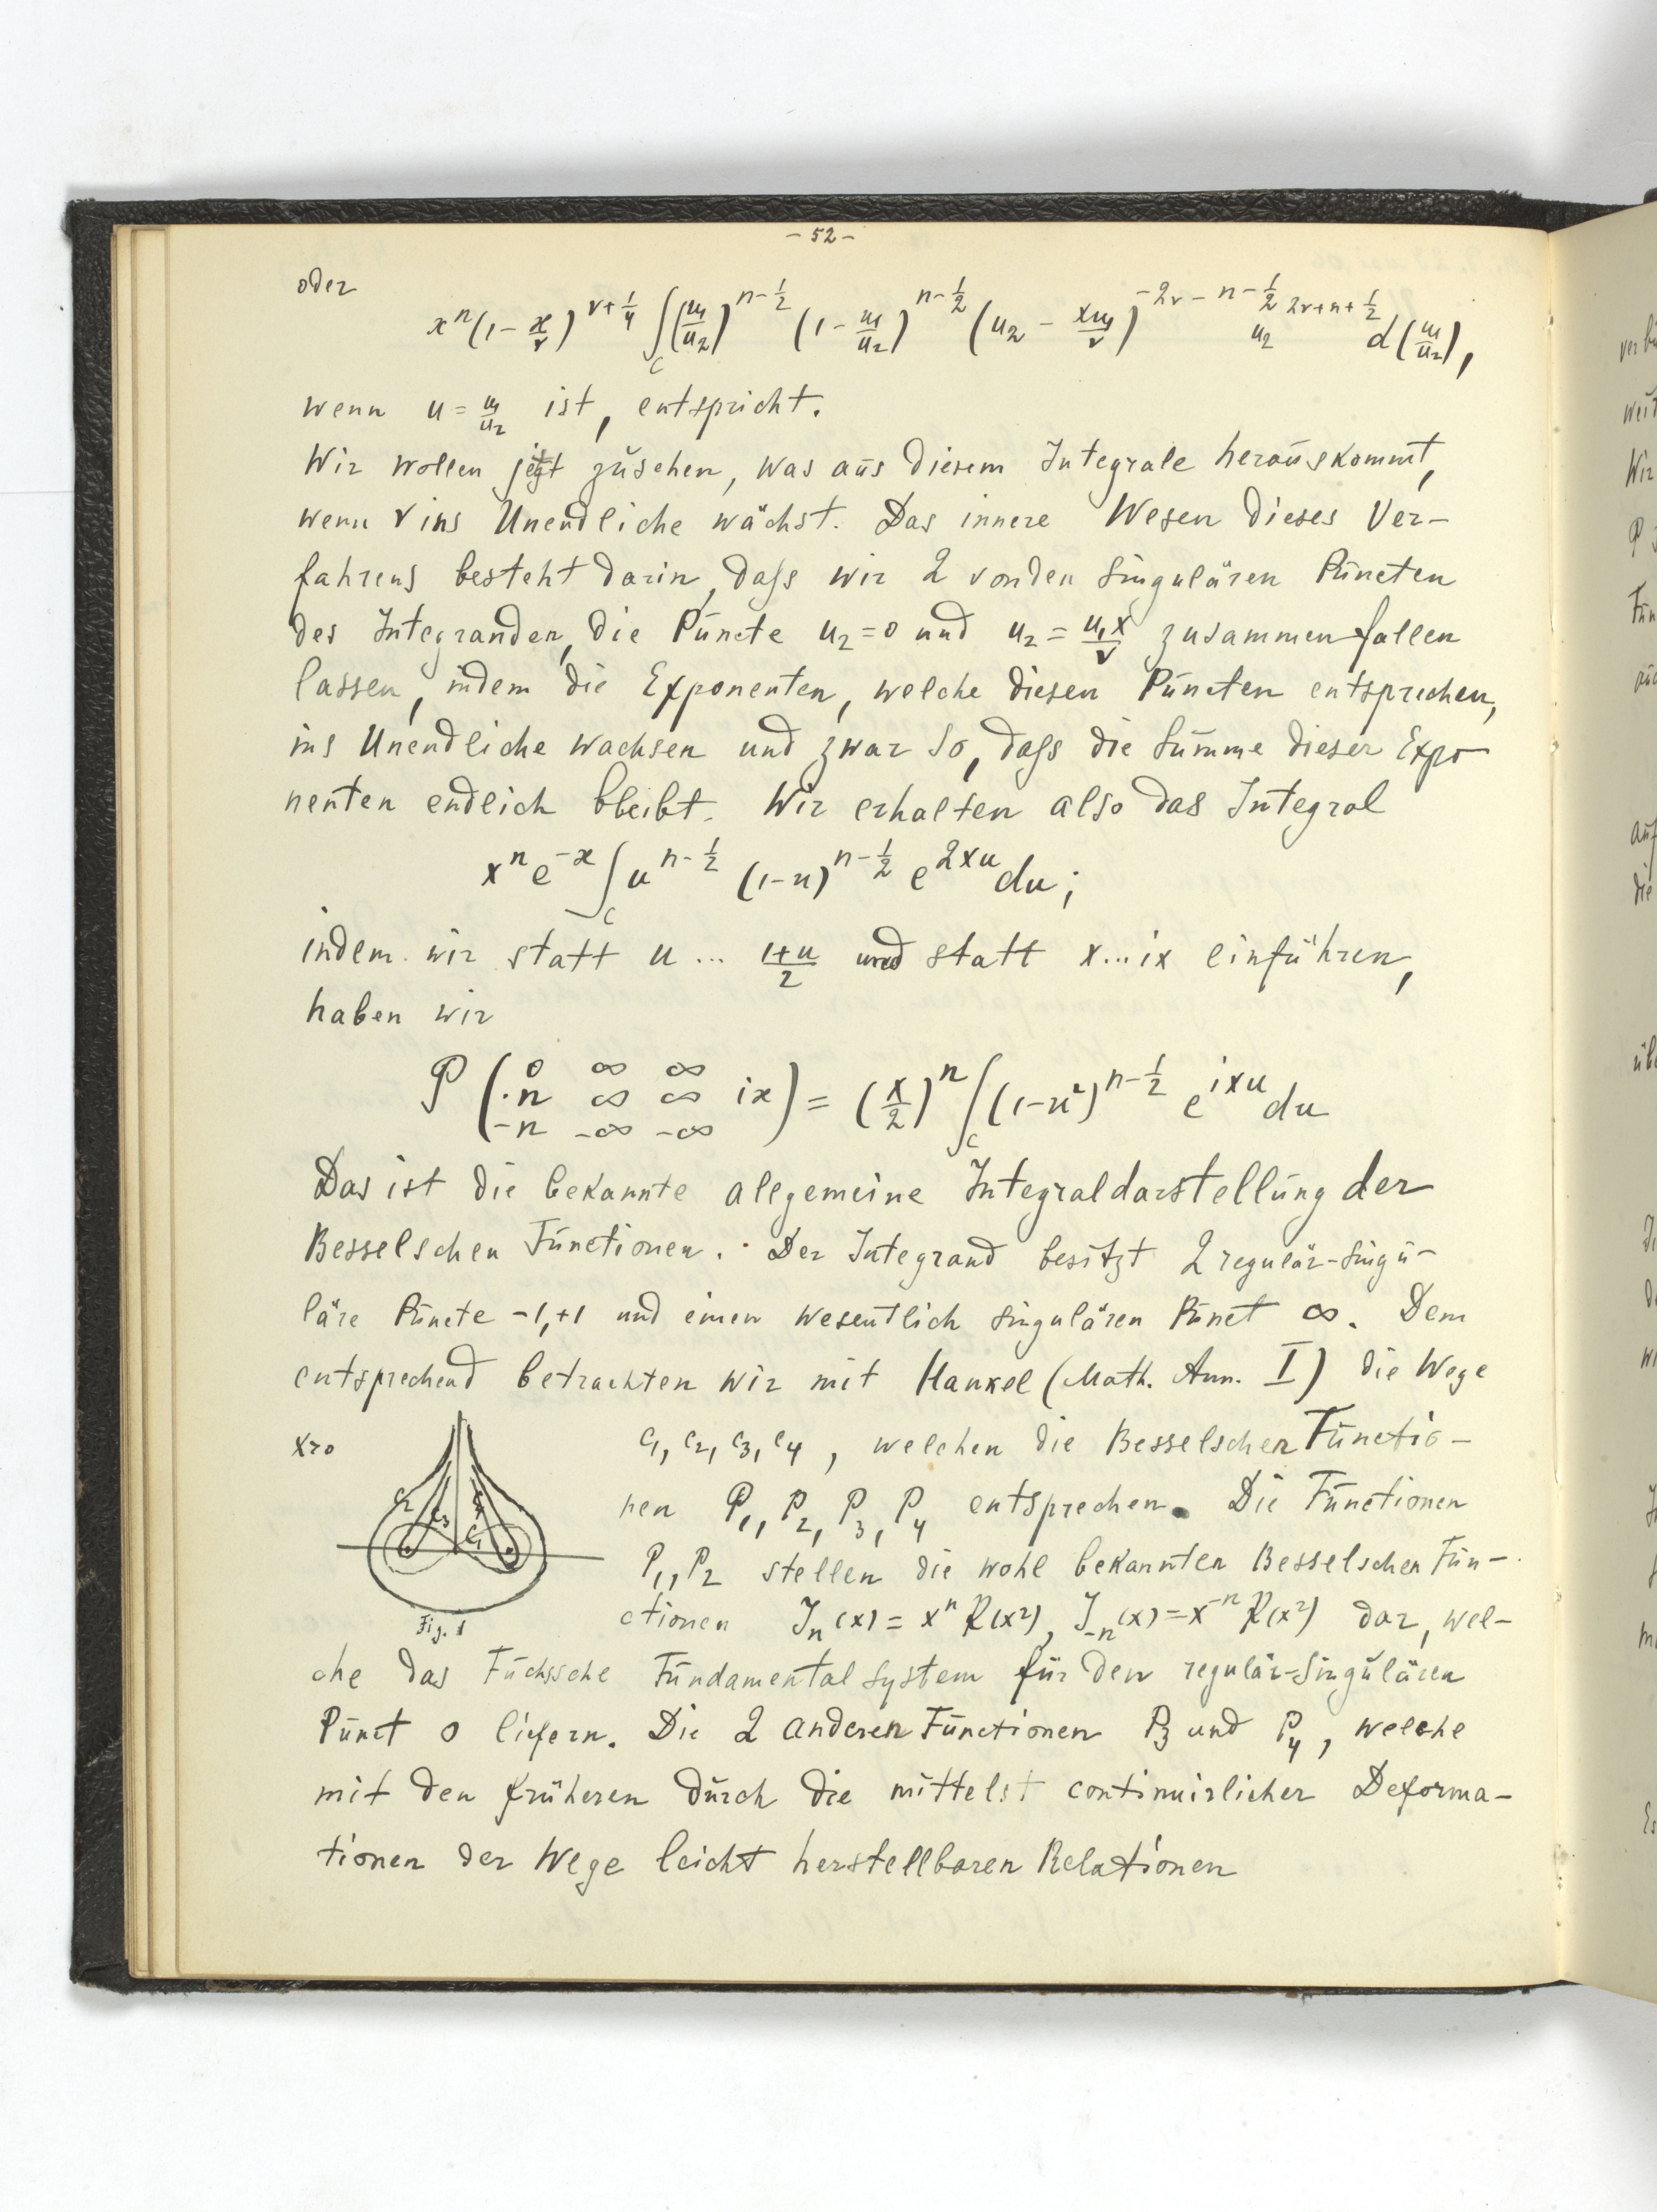 - 52 -
oder
x^n (1 - x/ν)^{ν+1/4} ∫_C (u₁/u₂)^{n-1/2} (1 - u₁/u₂)^{n-1/2} (u₂ - xu₁/ν)^{-2ν-n-1/2} u₂^{2ν+n+1/2} d(u₁/u₂),
wenn u = u₁/u₂ ist, entspricht.
Wir wollen jetzt zusehen, was aus diesem Integrale herauskommt,
wenn ν ins Unendliche wächst. Das innere Wesen dieses Ver-
fahrens besteht darin, dass wir 2 von den singulären Puncten
des Integranden, die Puncte u₂=0 und u₂ = u₁x/ν zusammenfallen
lassen, indem die Exponenten, welche diesen Puncten entsprechen,
ins Unendliche wachsen und zwar so, dass die Summe dieser Expo-
nenten endlich bleibt. Wir erhalten also das Integral
x^n e^{-x} ∫_C u^{n-1/2} (1-u)^{n-1/2} e^{2xu} du;
indem wir statt u ... (1+u)/2 und statt x...ix einführen,
haben wir
P ( 0 ∞ ∞
·n ∞ ∞ ix ) = (x/2)^n ∫_C (1-u²)^{n-1/2} e^{ixu} du
-n -∞ -∞
Das ist die bekannte allgemeine Integraldarstellung der
Besselschen Functionen. Der Integrand besitzt 2 regulär-singu-
läre Puncte -1,+1 und einen wesentlich singulären Punct ∞. Dem
entsprechend betrachten wir mit Hankel (Math. Ann. I) die Wege
x>0
c₁, c₂, c₃, c₄, welchen die Besselschen Functio-
nen P₁, P₂, P₃, P₄ entsprechen. Die Functionen
c₂ c₃ c₄ c₁
P₁, P₂ stellen die wohl bekannten Besselschen Fun-
ctionen J_n(x) = x^n R(x²), J_{-n}(x) = x^{-n} R(x²) dar, wel-
Fig. 1
che das Fuchssche Fundamentalsystem für den regulär-singulären
Punct 0 liefern. Die 2 anderen Functionen P₃ und P₄, welche
mit den früheren durch die mittelst continuirlicher Deforma-
tionen der Wege leicht herstellbaren Relationen